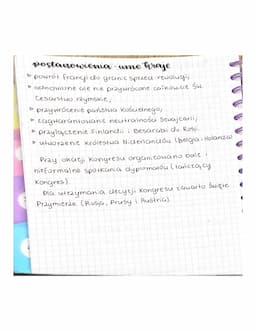 postanowienia - inne kraje
powrót Francji do granic sprzed rewolucji,
odnowione ale nie przywrócone całkowicie Św.
Cesarstwo rzymskie,
przywrócenie państwa Kościelnego,
zagwarantowanie neutralności Szwajcarii,
przyłączenie Finlandii i Besarabii do Rosji.
utworzenie Królestwa Niderlandów (Belgia+Holandia)
Przy okazji Kongresu organizowano bale i
nieformalne spotkania dyplomatów (tańczący
Kongres)
Dla utrzymania decyzji Kongresu zawarto Święte
Przymierze (Rosja, Prusy i Austria)